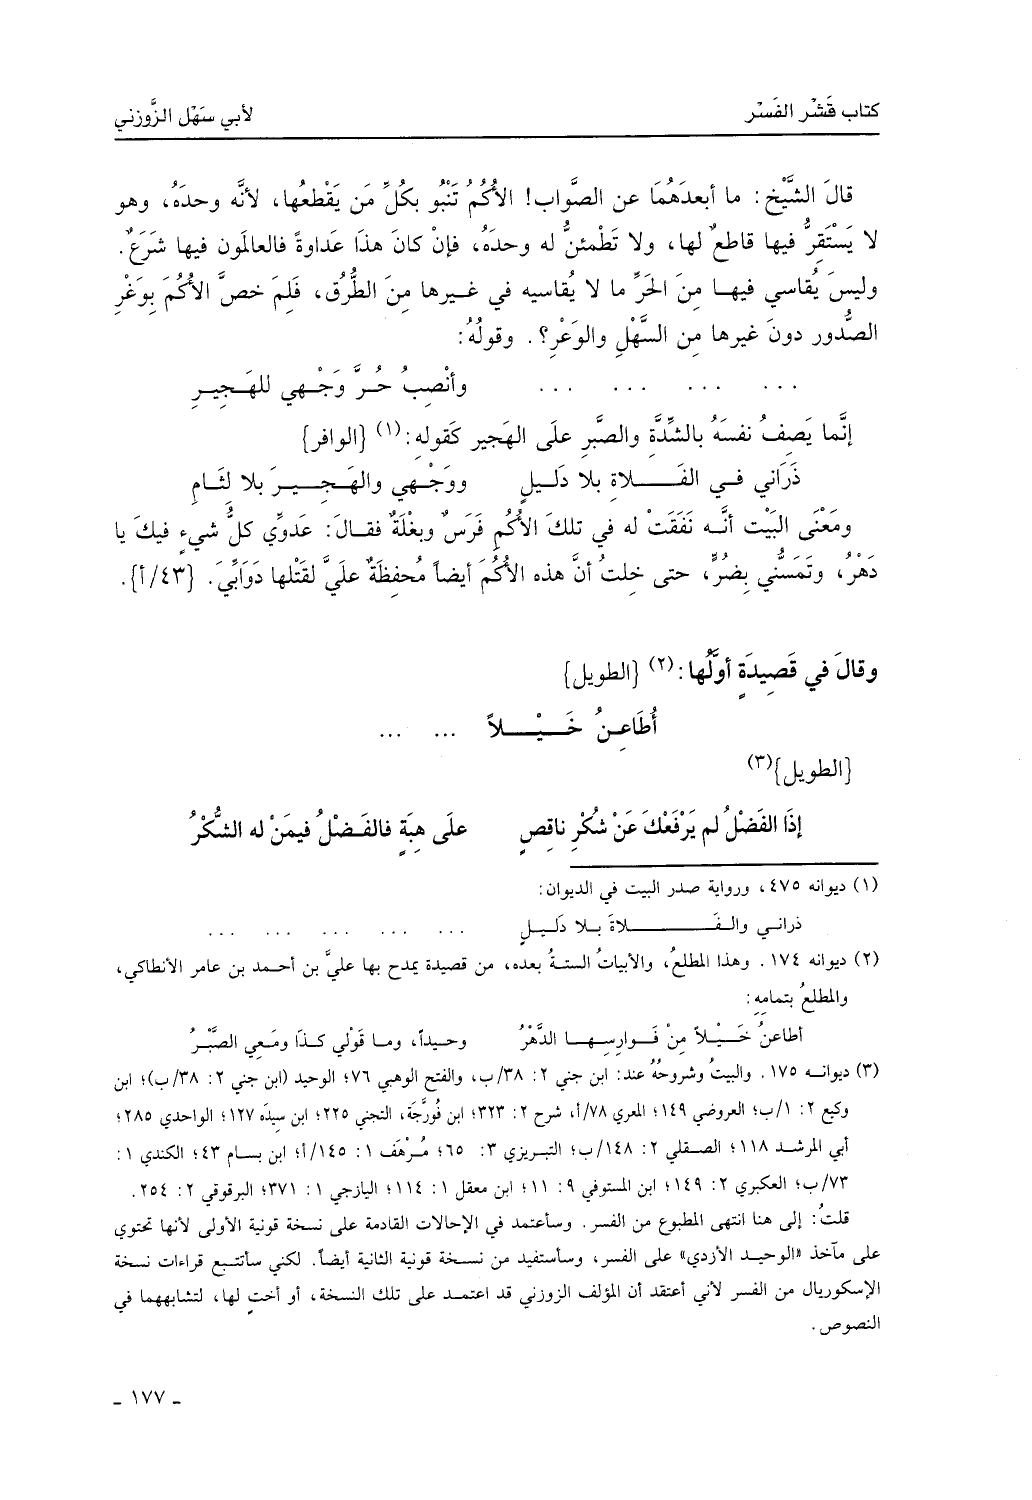 كتاب قَشْر الفَسْر لأبي سَهْل الزَّوزني
قالَ الشَّيْخ: ما أبعدَهُمَا عن الصَّواب! الأُكُمُ تَنْبُو بكُلِّ مَن يَقْطعُها، لأنَّه وحدَهُ، وهو
لا يَسْتَقِرُّ فيها قاطعٌ لها، ولا تَطْمئنُّ له وحدَهُ، فإنْ كانَ هذا عَداوةً فالعالمون فيها شَرَعٌ.
وليسَ يُقاسي فيهـا مِنَ الحَرِّ ما لا يُقاسيه في غيرها مِنَ الطُّرُق، فَلِمَ خصَّ الأُكُمَ بِوَغْرِ
الصُّدور دونَ غيرها مِن السَّهْلِ والوَعْرِ؟. وقولُهُ:
... ... ... ... وأنْصِبُ حُرَّ وَجْهي للهَجِيرِ
إنَّما يَصفُ نفسَهُ بالشِّدَّة والصَّبرِ علَى الهَجير كَقوله:(١) {الوافر}
ذَرَاني في الفَـــلاةِ بلا دَليلٍ ووَجْهي والهَجِـيرَ بلا لثَامِ
ومَعْنَى البَيْت أنَّـه نَفَقَتْ له في تلكَ الأُكُمِ فَرَسٌ وبغْلَةٌ فقـالَ: عَدوِّي كلُّ شيءٍ فيكَ يا
دَهْرُ، وتَمَسَّني بِضُرٍّ، حتى خلتُ أنَّ هذه الأُكُمَ أيضاً مُحفِظَةٌ عليَّ لقَتْلها دَوَابِّيَ. {٤٣/أ}.
وقالَ في قَصِيدَةٍ أوَّلُها:(٢) {الطويل}
أُطَاعِنُ خَيْـــلاً ... ...
{الطويل}(٣)
إذَا الفَضْلُ لم يَرْفَعْكَ عَنْ شُكْرِ ناقِصٍ علَى هِبَةٍ فالفَـضْلُ فيمَنْ له الشُّكْرُ
(١) ديوانه ٤٧٥، ورواية صدر البيت في الديوان:
ذراني والفَـــــلاةَ بلا دَليلٍ ... ... ... ... ...
(٢) ديوانه ١٧٤. وهذا المطلعُ، والأبياتُ الستةُ بعده، من قصيدة يمدح بها عليَّ بن أحمد بن عامر الأنطاكي،
والمطلعُ بتمامِهِ:
أطاعنُ خَيْلاً مِنْ فَوارِسِهـا الدَّهْرُ وحيداً، ومـا قَوْلي كـذَا ومَعِي الصَّبْرُ
(٣) ديوانـه ١٧٥. والبيتُ وشروحُهُ عند: ابن جني ٢: ٣٨/ب، والفتح الوهبي ٧٦؛ الوحيد (ابن جني ٢: ٣٨/ب)؛ ابن
وكيع ٢: ١/ب؛ العروضي ١٤٩؛ المعري ٧٨/أ، شرح ٢: ٣٢٣؛ ابن فُورَّجَة، التجني ٢٢٥؛ ابن سيدَه ١٢٧؛ الواحدي ٢٨٥؛
أبي المرشـد ١١٨؛ الصـقلي ٢: ١٤٨/ب؛ التبريزي ٣: ٦٥؛ مُرْهَف ١: ١٤٥/أ؛ ابن بسـام ٤٣؛ الكندي ١:
٧٣/ب؛ العكبري ٢: ١٤٩؛ ابن المستوفي ٩: ١١؛ ابن معقل ١: ١١٤؛ اليازجي ١: ٣٧١؛ البرقوقي ٢: ٢٥٤.
قلتُ: إلى هنا انتهى المطبوع من الفسر. وسأعتمد في الإحالات القادمة على نسخة قونية الأولى لأنها تحتوي
على مآخذ «الوحيـد الأزدي» على الفسر، وسأستفيد من نسـخة قونية الثانية أيضاً. لكني سأتتبـع قراءات نسخة
الإسكوريال من الفسر لأني أعتقد أن المؤلف الزوزني قد اعتمـد على تلك النسخة، أو أختٍ لها، لتشابههما في
النصوص.
ـ ١٧٧ ـ